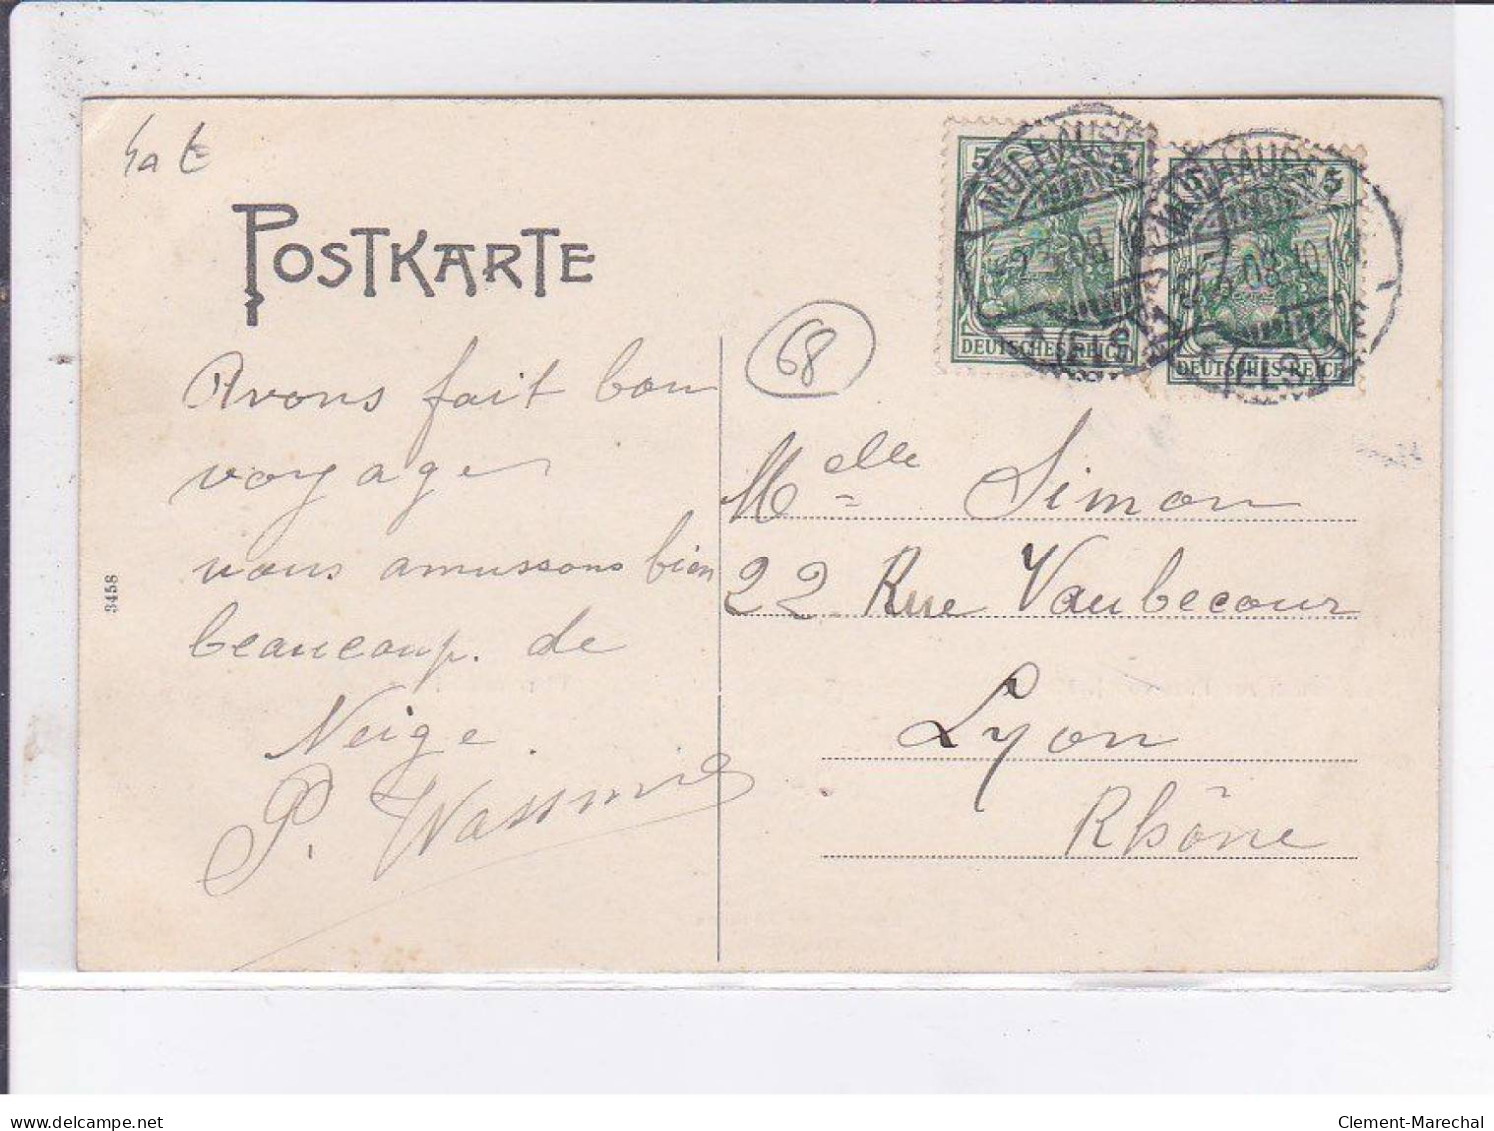 POSTKARTE
68
5 5
5 5
MÜLHAUSE
MÜLHAUSE
(ELS.)
(ELS.)
DEUTSCHES REICH
DEUTSCHES REICH
Avons fait bon
voyage
nous amussons bien
beaucoup. de
Neige.
P.
Melle Simon
22 Rue Vaubecour
Lyon
Rhône
3458
delcampe.net
Clement-Marechal